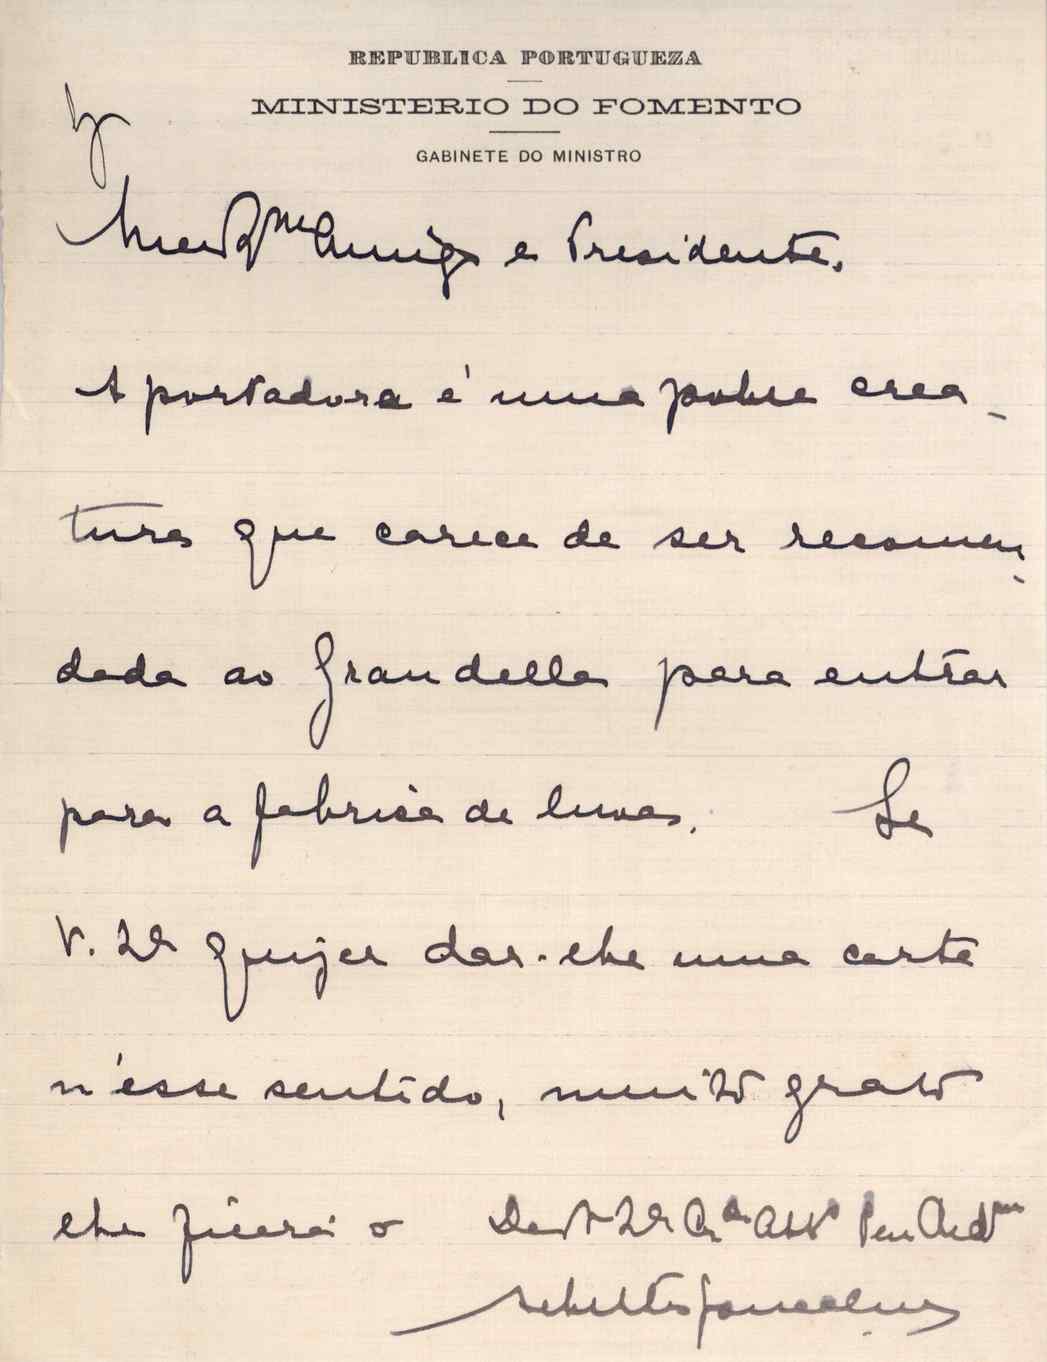 REPUBLICA PORTUGUEZA
MINISTERIO DO FOMENTO
GABINETE DO MINISTRO
Amigo e Presidente.
A portadora é uma pobre crea-
tura que carece de ser recomen-
dada ao Grandella para entrar
para a fabrica de luvas. Se
V. Exª quizer dar-lhe uma carta
n'esse sentido, muito grato
lhe ficará o De V. Exª